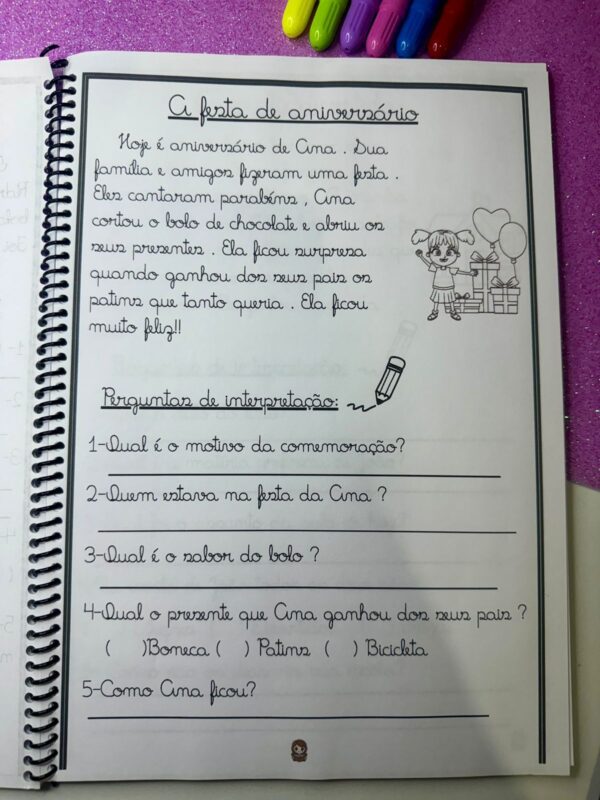 A festa de aniversário
Hoje é aniversário de Ana . Sua
família e amigos fizeram uma festa .
Eles cantaram parabéns , Ana
cortou o bolo de chocolate e abriu os
seus presentes . Ela ficou surpresa
quando ganhou dos seus pais os
patins que tanto queria . Ela ficou
muito feliz!!
Perguntas de interpretação:
1-Qual é o motivo da comemoração?
2-Quem estava na festa da Ana ?
3-Qual é o sabor do bolo ?
4-Qual o presente que Ana ganhou dos seus pais ?
( )Boneca ( ) Patins ( ) Bicicleta
5-Como Ana ficou?